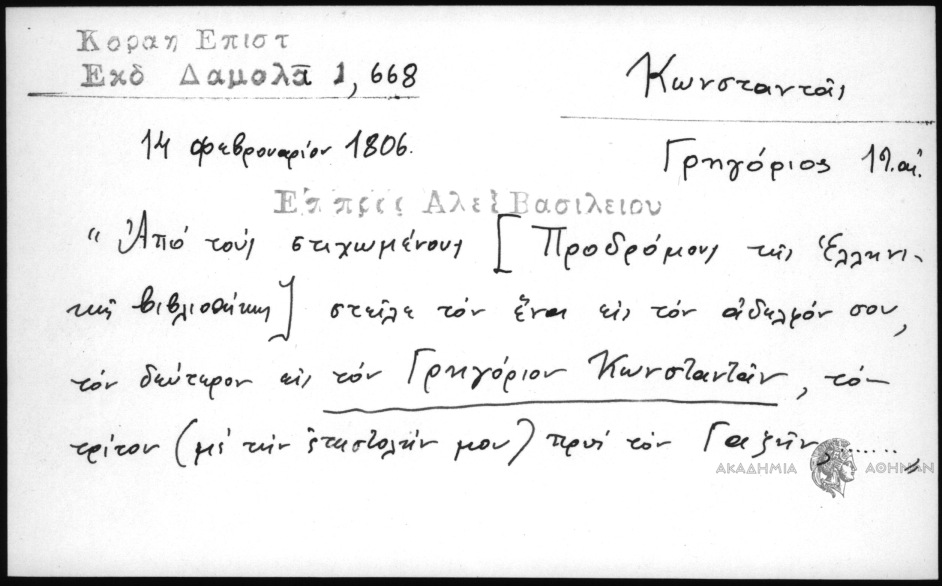 Κοραη Επιστ
Εκδ Δαμαλᾶ 1, 668
Κωνσταντᾶς
14 Φεβρουαρίου 1806.
Γρηγόριος 19. αἰ.
Επ προς Αλεξ Βασιλειου
“Ἀπό τούς στιχωμένους [Προδρόμους τῆς Ἑλληνι-
κῆς βιβλιοθήκης] στεῖλε τόν ἕνα εἰς τόν ἀδελφόν σου,
τόν δεύτερον εἰς τόν Γρηγόριον Κωνσταντᾶν, τόν
τρίτον (μέ τήν ἐπιστολήν μου) πρός τόν Γαζῆν, ........ „
ΑΚΑΔΗΜΙΑ ΑΘΗΝΩΝ